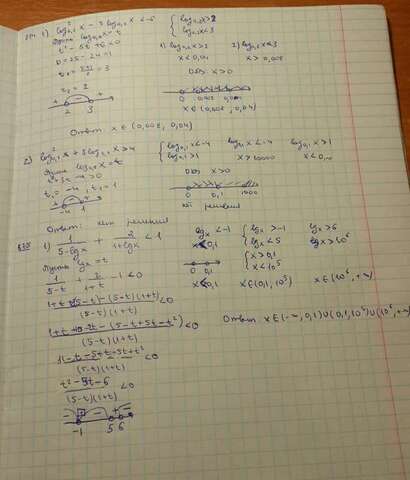 1) log²₀,₂ x - 5 log₀,₂ x < -6
Пусть log₀,₂ x = t
t² - 5t + 6 < 0
D = 25 - 24 = 1
t₁ = = 3
t₂ = 2
+ - +
2 3
{ log₀,₂ x > 2
log₀,₂ x < 3
1) log₀,₂ x > 2
x < 0,04
2) log₀,₂ x < 3
x > 0,008
ОДЗ x > 0
0 0,008 0,04
x ∈ (0,008; 0,04)
Ответ x ∈ (0,008, 0,04)
2) log²₀,₁ x + 3 log₀,₁ x > 4
Пусть log₀,₁ x = t
t² + 3t - 4 > 0
t₁ = -4, t₂ = 1
-4 1
{ log₀,₁ x < -4
log₀,₁ x > 1
log₀,₁ x < -4
x > 10000
log₀,₁ x > 1
x < 0,1
ОДЗ x > 0
0 0,1 10000
нет решений
Ответ: нет решений
1) 1/(5-lgx) + 2/(1+lgx) < 1
Пусть lgx = t
1/(5-t) + 2/(1+t) - 1 < 0
(1+t+2(5-t)-(5-t)(1+t))/((5-t)(1+t)) < 0
(1+t+10-2t-(5-t+5t-t²))/((5-t)(1+t)) < 0
/((5-t)(1+t)) < 0
(t²-5t-6)/((5-t)(1+t)) < 0
-1 5 6
lgx < -1
x < 0,1
0 0,1
x < 0,1
{ lgx > -1
lgx < 5
{ x > 0,1
x < 10⁵
x ∈ (0,1, 10⁵)
lgx > 6
x ∈ (10⁶, +∞)
Ответ x ∈ (-∞, 0,1) ∪ (0,1, 10⁵) ∪ (10⁶, +∞)